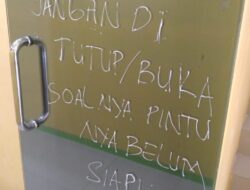 JANGAN DI
TUTUP/BUKA
SOALNYA PINTU
NYA BELUM
SIAP!